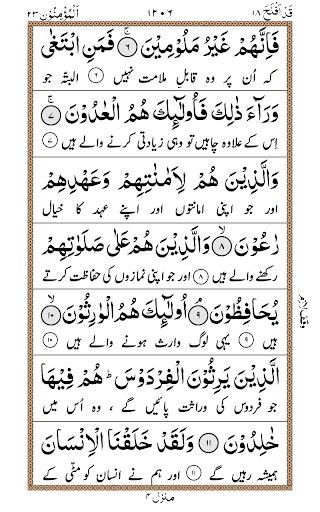 قَدْ اَفْلَحَ ١٨ ١٢٠٦ اَلْمُؤْمِنُوْن ٢٣
فَاِنَّهُمْ غَيْرُ مَلُوْمِيْنَ ۚ﴿٦﴾ فَمَنِ ابْتَغٰى
کہ اُن پر وہ قابلِ ملامت نہیں ﴿٦﴾ البتہ جو
وَرَآءَ ذٰلِكَ فَاُولٰٓئِكَ هُمُ الْعٰدُوْنَ ۚ﴿٧﴾
اِس کے علاوہ چاہیں تو وہی زیادتی کرنے والے ہیں ﴿٧﴾
وَالَّذِيْنَ هُمْ لِاَمٰنٰتِهِمْ وَعَهْدِهِمْ
اور جو اپنی امانتوں اور اپنے عہد کا خیال
رٰعُوْنَ ۙ﴿٨﴾ وَالَّذِيْنَ هُمْ عَلٰى صَلَوٰتِهِمْ
رکھنے والے ہیں ﴿٨﴾ اور جو اپنی نمازوں کی حفاظت کرتے
يُحَافِظُوْنَ ۘ﴿٩﴾ اُولٰٓئِكَ هُمُ الْوٰرِثُوْنَ ۙ﴿١٠﴾
ہیں ﴿٩﴾ یہی لوگ وارث ہونے والے ہیں ﴿١٠﴾
وقف لازم
الَّذِيْنَ يَرِثُوْنَ الْفِرْدَوْسَ ؕ هُمْ فِيْهَا
جو فردوس کی وراثت پائیں گے ، وہ اُس میں
خٰلِدُوْنَ ﴿١١﴾ وَلَقَدْ خَلَقْنَا الْاِنْسَانَ
ہمیشہ رہیں گے ﴿١١﴾ اور ہم نے انسان کو مٹی کے
منزل ٤